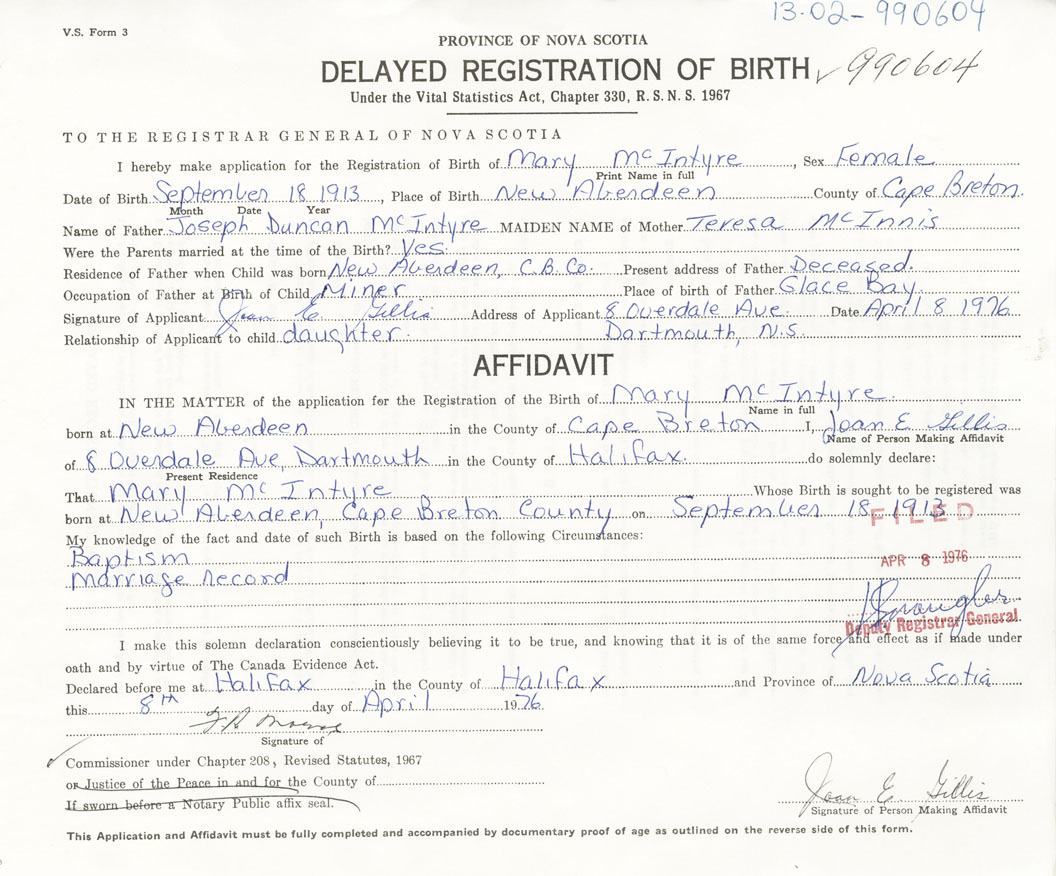 13-02-990604
V.S. Form 3
PROVINCE OF NOVA SCOTIA
DELAYED REGISTRATION OF BIRTH ✓ 990604
Under the Vital Statistics Act, Chapter 330, R.S.N.S. 1967
TO THE REGISTRAR GENERAL OF NOVA SCOTIA
I hereby make application for the Registration of Birth of Mary McIntyre, Sex Female
Print Name in full
Date of Birth September 18 1913, Place of Birth New Aberdeen County of Cape Breton.
Month Date Year
Name of Father Joseph Duncan McIntyre MAIDEN NAME of Mother Teresa McInnis
Were the Parents married at the time of the Birth? Yes.
Residence of Father when Child was born New Aberdeen, C.B. Co. Present address of Father Deceased.
Occupation of Father at Birth of Child Miner Place of birth of Father Glace Bay
Signature of Applicant Joan E. Gillis Address of Applicant 8 Overdale Ave. Date April 8 1976
Relationship of Applicant to child daughter. Dartmouth, N.S.
AFFIDAVIT
IN THE MATTER of the application for the Registration of the Birth of Mary McIntyre.
Name in full
born at New Aberdeen in the County of Cape Breton I, Joan E Gillis
(Name of Person Making Affidavit
of 8 Overdale Ave, Dartmouth in the County of Halifax. do solemnly declare:
Present Residence
That Mary McIntyre Whose Birth is sought to be registered was
born at New Aberdeen, Cape Breton County on September 18 1913
FILED
My knowledge of the fact and date of such Birth is based on the following Circumstances:
Baptism
APR 8 1976
Marriage Record
Deputy Registrar General
I make this solemn declaration conscientiously believing it to be true, and knowing that it is of the same force and effect as if made under
oath and by virtue of The Canada Evidence Act.
Declared before me at Halifax in the County of Halifax and Province of Nova Scotia
this 8th day of April 1976.
Signature of
✓ Commissioner under Chapter 208, Revised Statutes, 1967
or Justice of the Peace in and for the County of
If sworn before a Notary Public affix seal.
Joan E. Gillis
Signature of Person Making Affidavit
This Application and Affidavit must be fully completed and accompanied by documentary proof of age as outlined on the reverse side of this form.